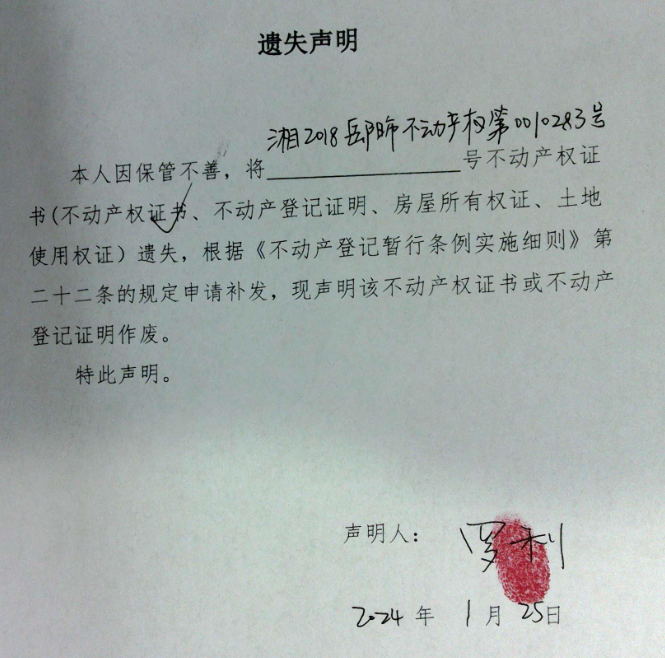 遗失声明
湘2018岳阳市不动产权第0010283号
本人因保管不善，将 号不动产权证
书(不动产权证书、不动产登记证明、房屋所有权证、土地
使用权证）遗失，根据《不动产登记暂行条例实施细则》第
二十二条的规定申请补发，现声明该不动产权证书或不动产
登记证明作废。
特此声明。
声明人：罗利
2024年1月25日